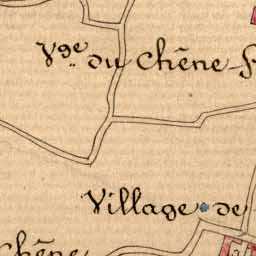 Vge du Chêne-
Village de
Chêne